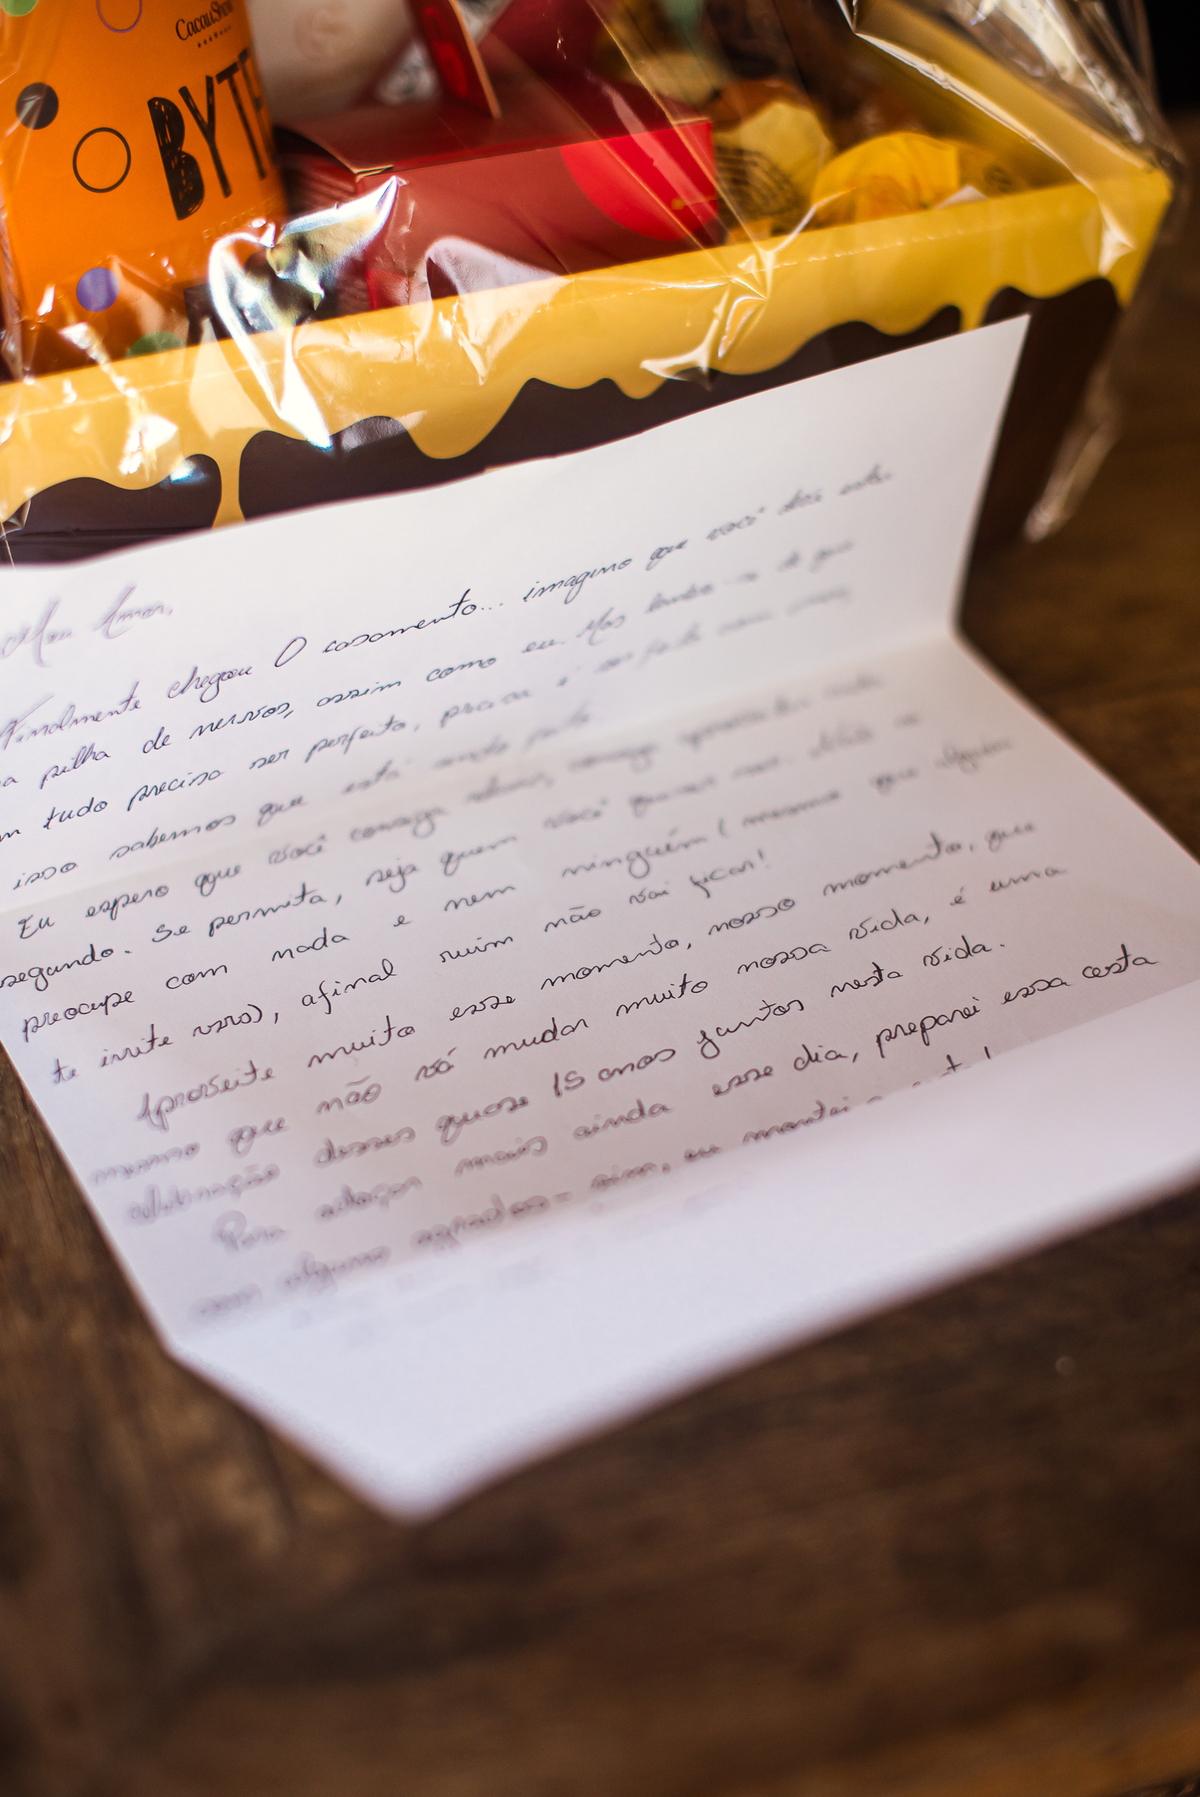 CacauShow
BYTE
Meu Amor,
Finalmente chegou O casamento... imagino que você deve estar
a pilha de nervos, assim como eu. Mas lembre-se de que
m tudo precisa ser perfeito, precisa é ser feito com amor,
isso sabemos que está sendo feito.
Eu espero que você consiga relaxar, consiga aproveitar cada
segundo. Se permita, seja quem você quiser ser. Não se
preocupe com nada e nem ninguém (mesmo que alguém
te irrite rsrs), afinal ruim não vai ficar!
Aproveite muito esse momento, nosso momento, que
mesmo que não vá mudar muito nossa vida, é uma
celebração desses quase 15 anos juntos nesta vida.
Para adoçar mais ainda esse dia, preparei essa cesta
com alguns agrados - sim, eu montei a cesta!